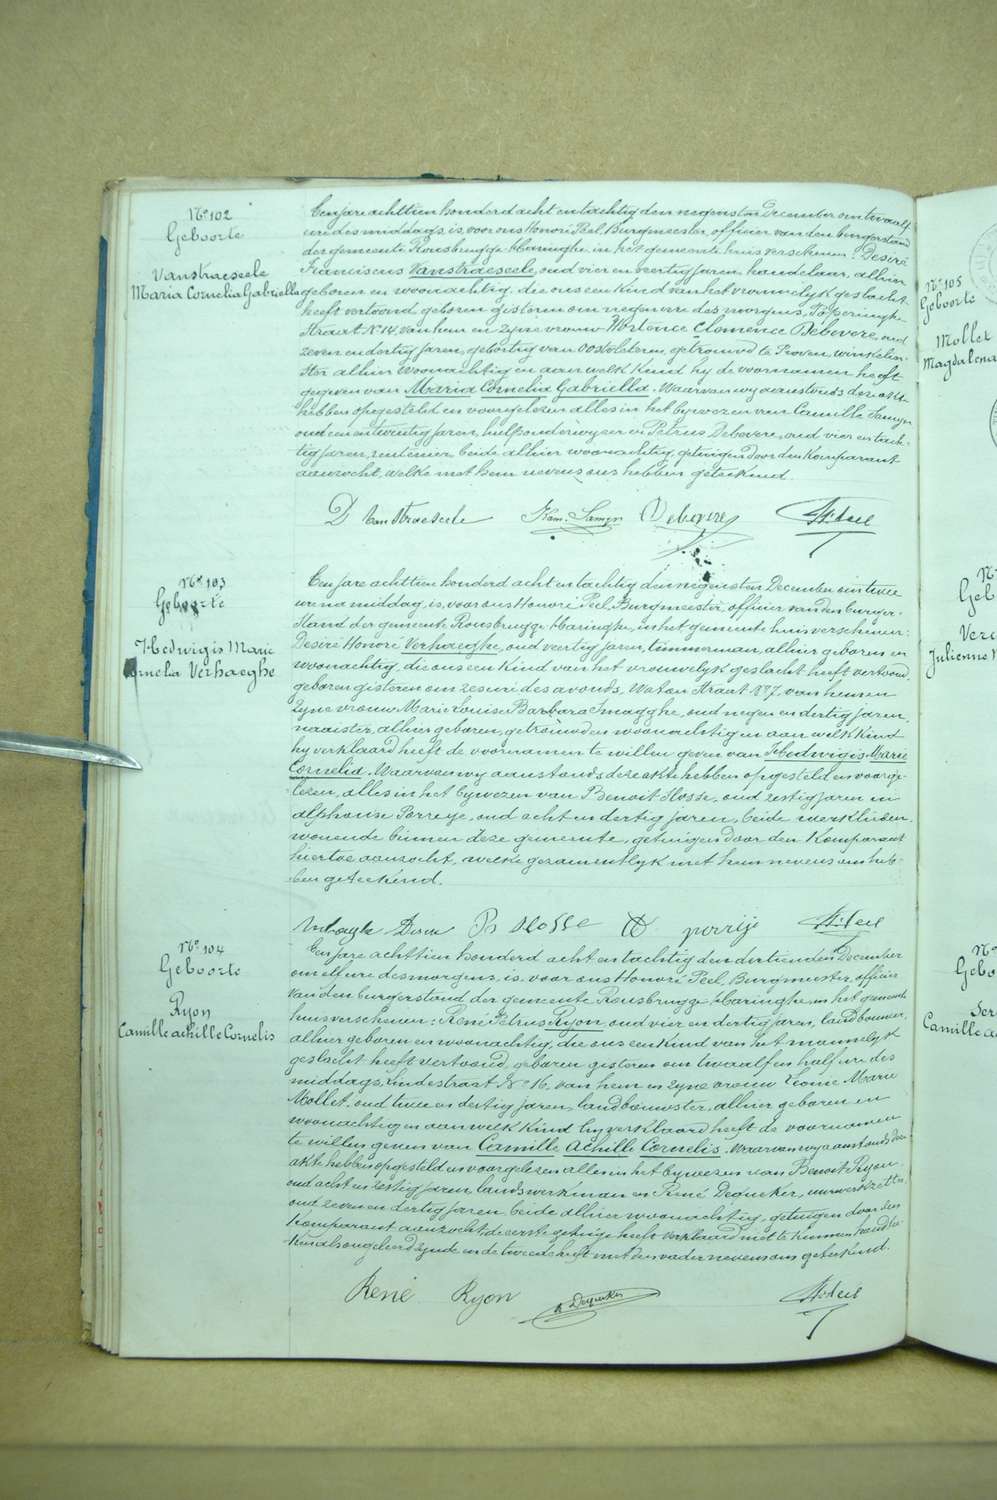 Nº 102
Geboorte
Vanstraeseele
Maria Cornelia Gabriella
Een jare achttien honderd acht en tachtig den negensten December om twaalf
ure des middags, is, voor ons Honoré Peel, Burgmeester, officier van den burgerstand
der gemeente Rousbrugge-Haringhe, in het gemeente huis verschenen: Desiré
Franciscus Vanstraeseele, oud vier en veertig jaren, handelaar, alhier
geboren en woonachtig, die ons een kind van het vrouwelyk geslacht
heeft vertoond, geboren gisteren om negen ure des morgens, Poperinghe
straat Nº 14, van hem en zyne vrouw Hortence Clemence Debevere, oud
zeven en dertig jaren, geboortig van Oostvleteren, getrouwd te Proven, winkelier-
ster alhier woonachtig en aan welk kind hy de voornamen heeft
gegeven van Maria Cornelia Gabriella. Waarvan wy aanstonds deze akte
hebben opgesteld en voorgelezen alles in het bywezen van Camille Samyn
oud een en twintig jaren, hulponderwyzer en Petrus Debevere, oud vier en tach-
tig jaren, rentenier beide alhier woonachtig, getuigen door den komparant
aanzocht, welke met hem nevens ons hebben geteekend.
D Vanstraeseele Kam. Samyn Debevere H. Peel
Nº 103
Geboorte
Hedwigis Marie
Cornelia Verhaeghe
Een jare achttien honderd acht en tachtig den negensten December om twee
ure na middag, is, voor ons Honoré Peel, Burgmeister, officier van den burger-
stand der gemeente Rousbrugge-Haringhe, in het gemeente huis verschenen:
Desiré Honoré Verhaeghe, oud veertig jaren, timmerman, alhier geboren en
woonachtig, die ons een kind van het vrouwelyk geslacht heeft vertoond,
geboren gisteren om zes uren des avonds, Wa straat 187, van hem en
zyne vrouw Marie Louise Barbara Smagghe, oud negen en dertig jaren,
naaister, alhier geboren, getrouwd en woonachtig en aan welk kind
hy verklaard heeft de voornamen te willen geven van Hedwigis Marie
Cornelia. Waarvan wy aanstonds deze akte hebben opgesteld en voorge-
lezen, alles in het bywezen van Benoit Slosse, oud zestig jaren en
alphonse Porreye, oud acht en dertig jaren, beide werklieden,
wonende binnen deze gemeente, getuigen door den komparant
hiertoe aanzocht, welke gezamentlyk met hem nevens ons heb-
ben geteekend.
Verhaeghe Bs Slosse porrije H. Peel
Nº 104
Geboorte
Ryon
Camille achille Cornelis
Een jare achttien honderd acht en tachtig den dertienden December
om elf ure des morgens, is, voor ons Honoré Peel, Burgmeister, officier
van den burgerstand der gemeente Rousbrugge-Haringhe, in het gemeente
huis verschenen: René Petrus Ryon, oud vier en dertig jaren, landbouwer,
alhier geboren en woonachtig, die ons een kind van het mannelyk
geslacht heeft vertoond, geboren gisteren om twaalf en half ure des
middags, Lindestraat Nº 16, van hem en zyne vrouw Leonie Marie
Mollet, oud twee en dertig jaren, landbouwster, alhier geboren en
woonachtig en aan welk kind hy verklaard heeft de voornamen
te willen geven van Camille Achille Cornelis. Waarvan wy aanstonds deze
akte hebben opgesteld en voorgelezen alles in het bywezen van Benoit Ryon,
oud acht en zestig jaren, landswerkman en René Dequeker, uurwerkzetter,
oud zeven en dertig jaren, beide alhier woonachtig, getuigen door den
komparant aanzocht, de eerste getuige heeft verklaard niet te kunnen
zynde en de tweede heeft met den vader nevens ons geteekend.
René Ryon R Dequeker H. Peel
Nº 105
Geboorte
Mollet
Magdalena
Geb
Vere
Julienne
Nº
Geboo
Ser
Camille a